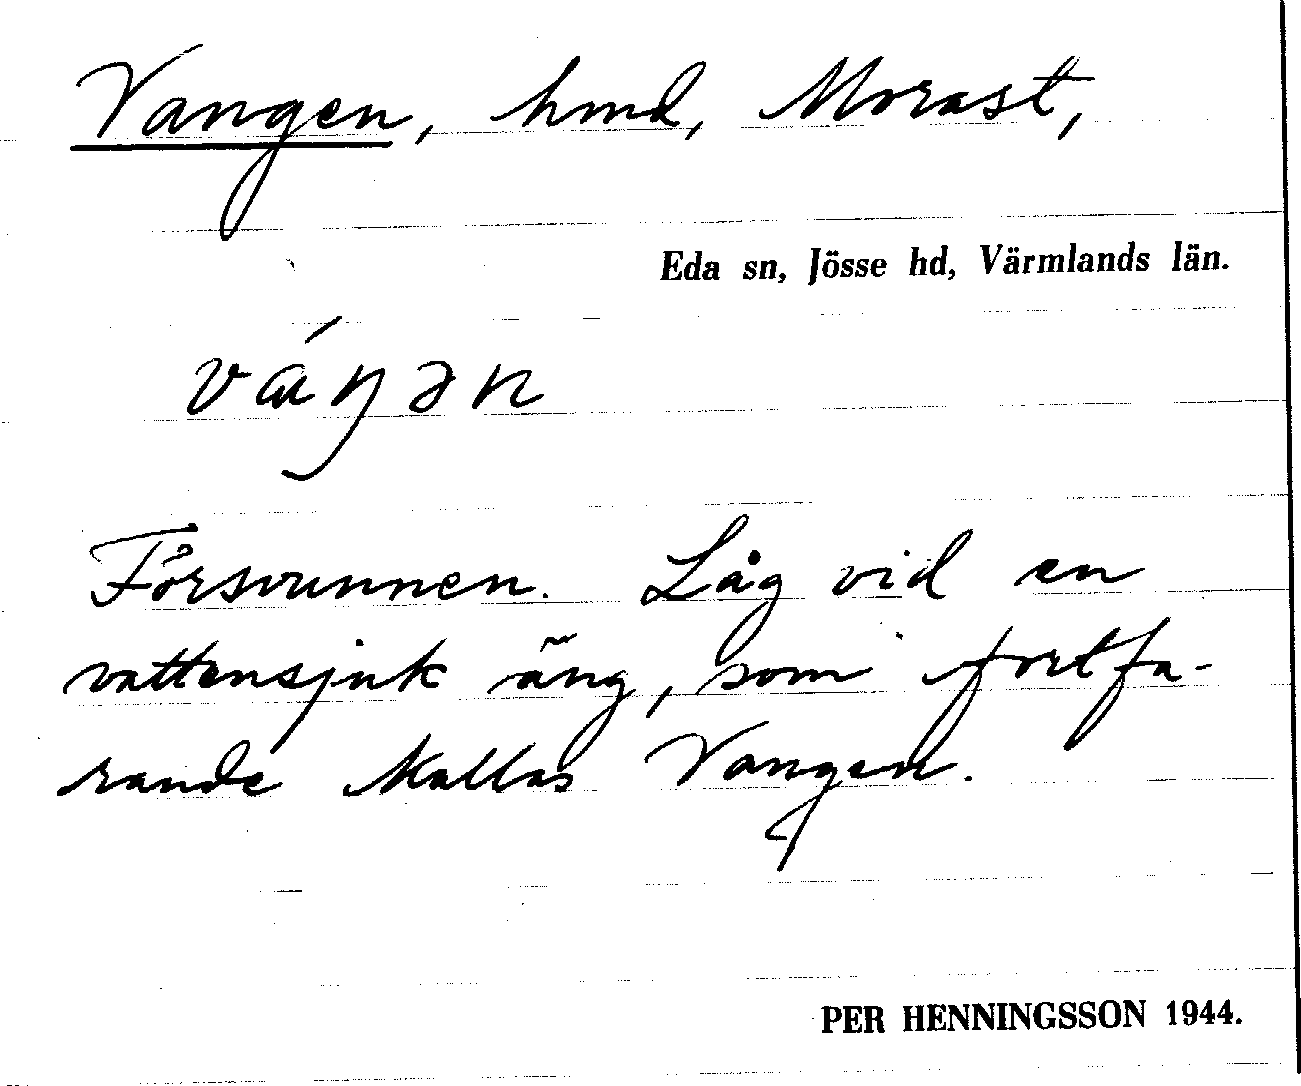 Vangen, hmd, Morast,
Eda sn, Jösse hd, Värmlands län.
váŋən
Försvunnen. Låg vid en
vattensjuk äng, som fortfa-
rande kallas Vangen.
PER HENNINGSSON 1944.